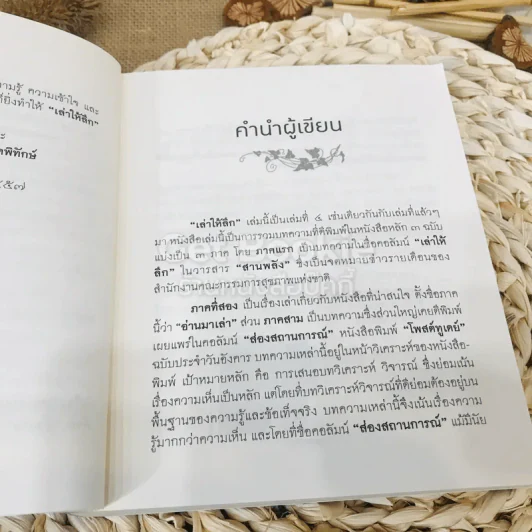 ามรู้ ความเข้าใจ และ
ที่ยิ่งทำให้ “เล่าให้ลึก”
ละ
พิทักษ์
๕๕๗
คำนำผู้เขียน
“เล่าให้ลึก” เล่มนี้เป็นเล่มที่ ๔ เช่นเดียวกันกับเล่มที่แล้วๆ
มา หนังสือเล่มนี้เป็นการรวมบทความที่ตีพิมพ์ในหนังสือหลัก ๓ ฉบับ
แบ่งเป็น ๓ ภาค โดย ภาคแรก เป็นบทความในชื่อคอลัมน์ “เล่าให้
ลึก” ในวารสาร “สานพลัง” ซึ่งเป็นจดหมายข่าวรายเดือนของ
สำนักงานคณะกรรมการสุขภาพแห่งชาติ
ภาคที่สอง เป็นเรื่องเล่าเกี่ยวกับหนังสือที่น่าสนใจ ตั้งชื่อภาค
นี้ว่า “อ่านมาเล่า” ส่วน ภาคสาม เป็นบทความซึ่งส่วนใหญ่เคยตีพิมพ์
เผยแพร่ในคอลัมน์ “ส่องสถานการณ์” หนังสือพิมพ์ “โพสต์ทูเดย์”
ฉบับประจำวันอังคาร บทความเหล่านี้อยู่ในหน้าวิเคราะห์ของหนังสือ-
พิมพ์ เป้าหมายหลัก คือ การเสนอบทวิเคราะห์ วิจารณ์ ซึ่งย่อมเน้น
เรื่องความเห็นเป็นหลัก แต่โดยที่บทวิเคราะห์วิจารณ์ที่ดีย่อมต้องอยู่บน
พื้นฐานของความรู้และข้อเท็จจริง บทความเหล่านี้จึงเน้นเรื่องความ
รู้มากกว่าความเห็น และโดยที่ชื่อคอลัมน์ “ส่องสถานการณ์” แม้มีนัย